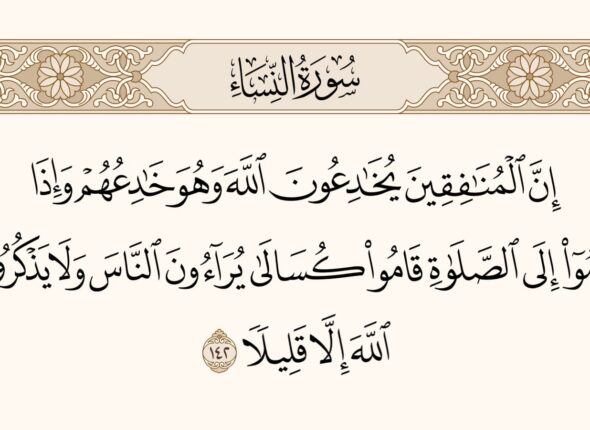 سُورَةُ النِّسَاءِ
إِنَّ ٱلْمُنَٰفِقِينَ يُخَٰدِعُونَ ٱللَّهَ وَهُوَ خَٰدِعُهُمْ وَإِذَا
إِلَى ٱلصَّلَوٰةِ قَامُوا۟ كُسَالَىٰ يُرَآءُونَ ٱلنَّاسَ وَلَا
ٱللَّهَ إِلَّا قَلِيلًا ١٤٢